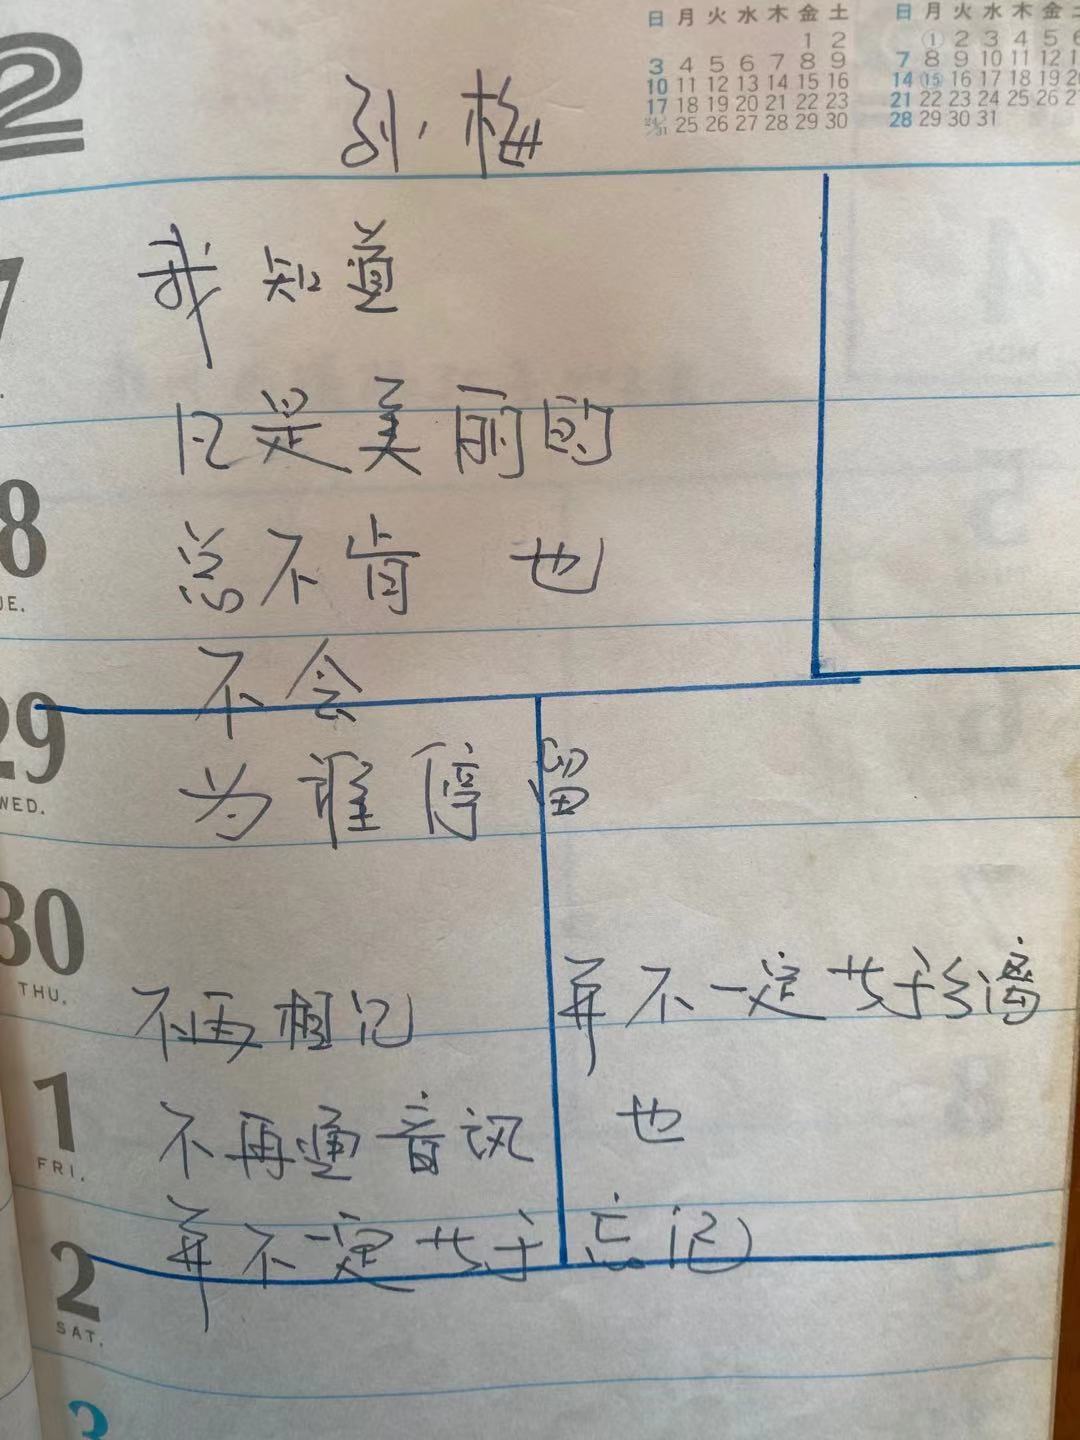 2
日 月 火 水 木 金 土
1 2
3 4 5 6 7 8 9
10 11 12 13 14 15 16
17 18 19 20 21 22 23
24/31 25 26 27 28 29 30
日 月 火 水 木 金
① 2 3 4 5 6
7 8 9 10 11 12
14 ⑮ 16 17 18 19 20
21 22 23 24 25 26 27
28 29 30 31
孙梅
我知道
凡是美丽的
总不肯 也
不会
为谁停留
不再相记
不再通音讯 也
并不一定等于
并不一定等于忘记
28
29
WED.
30
THU.
1
FRI.
2
SAT.
3